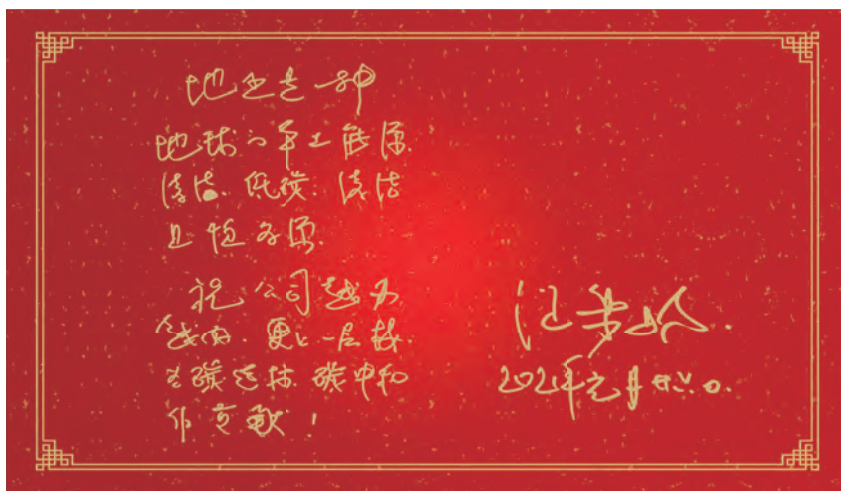 地热是一种
地球的本土能源.
清洁.低碳.清洁
且恒多源.
祝公司越办
越好.更上一层楼.
为碳达标 碳中和
作贡献!
汪集暘.
2021年元月